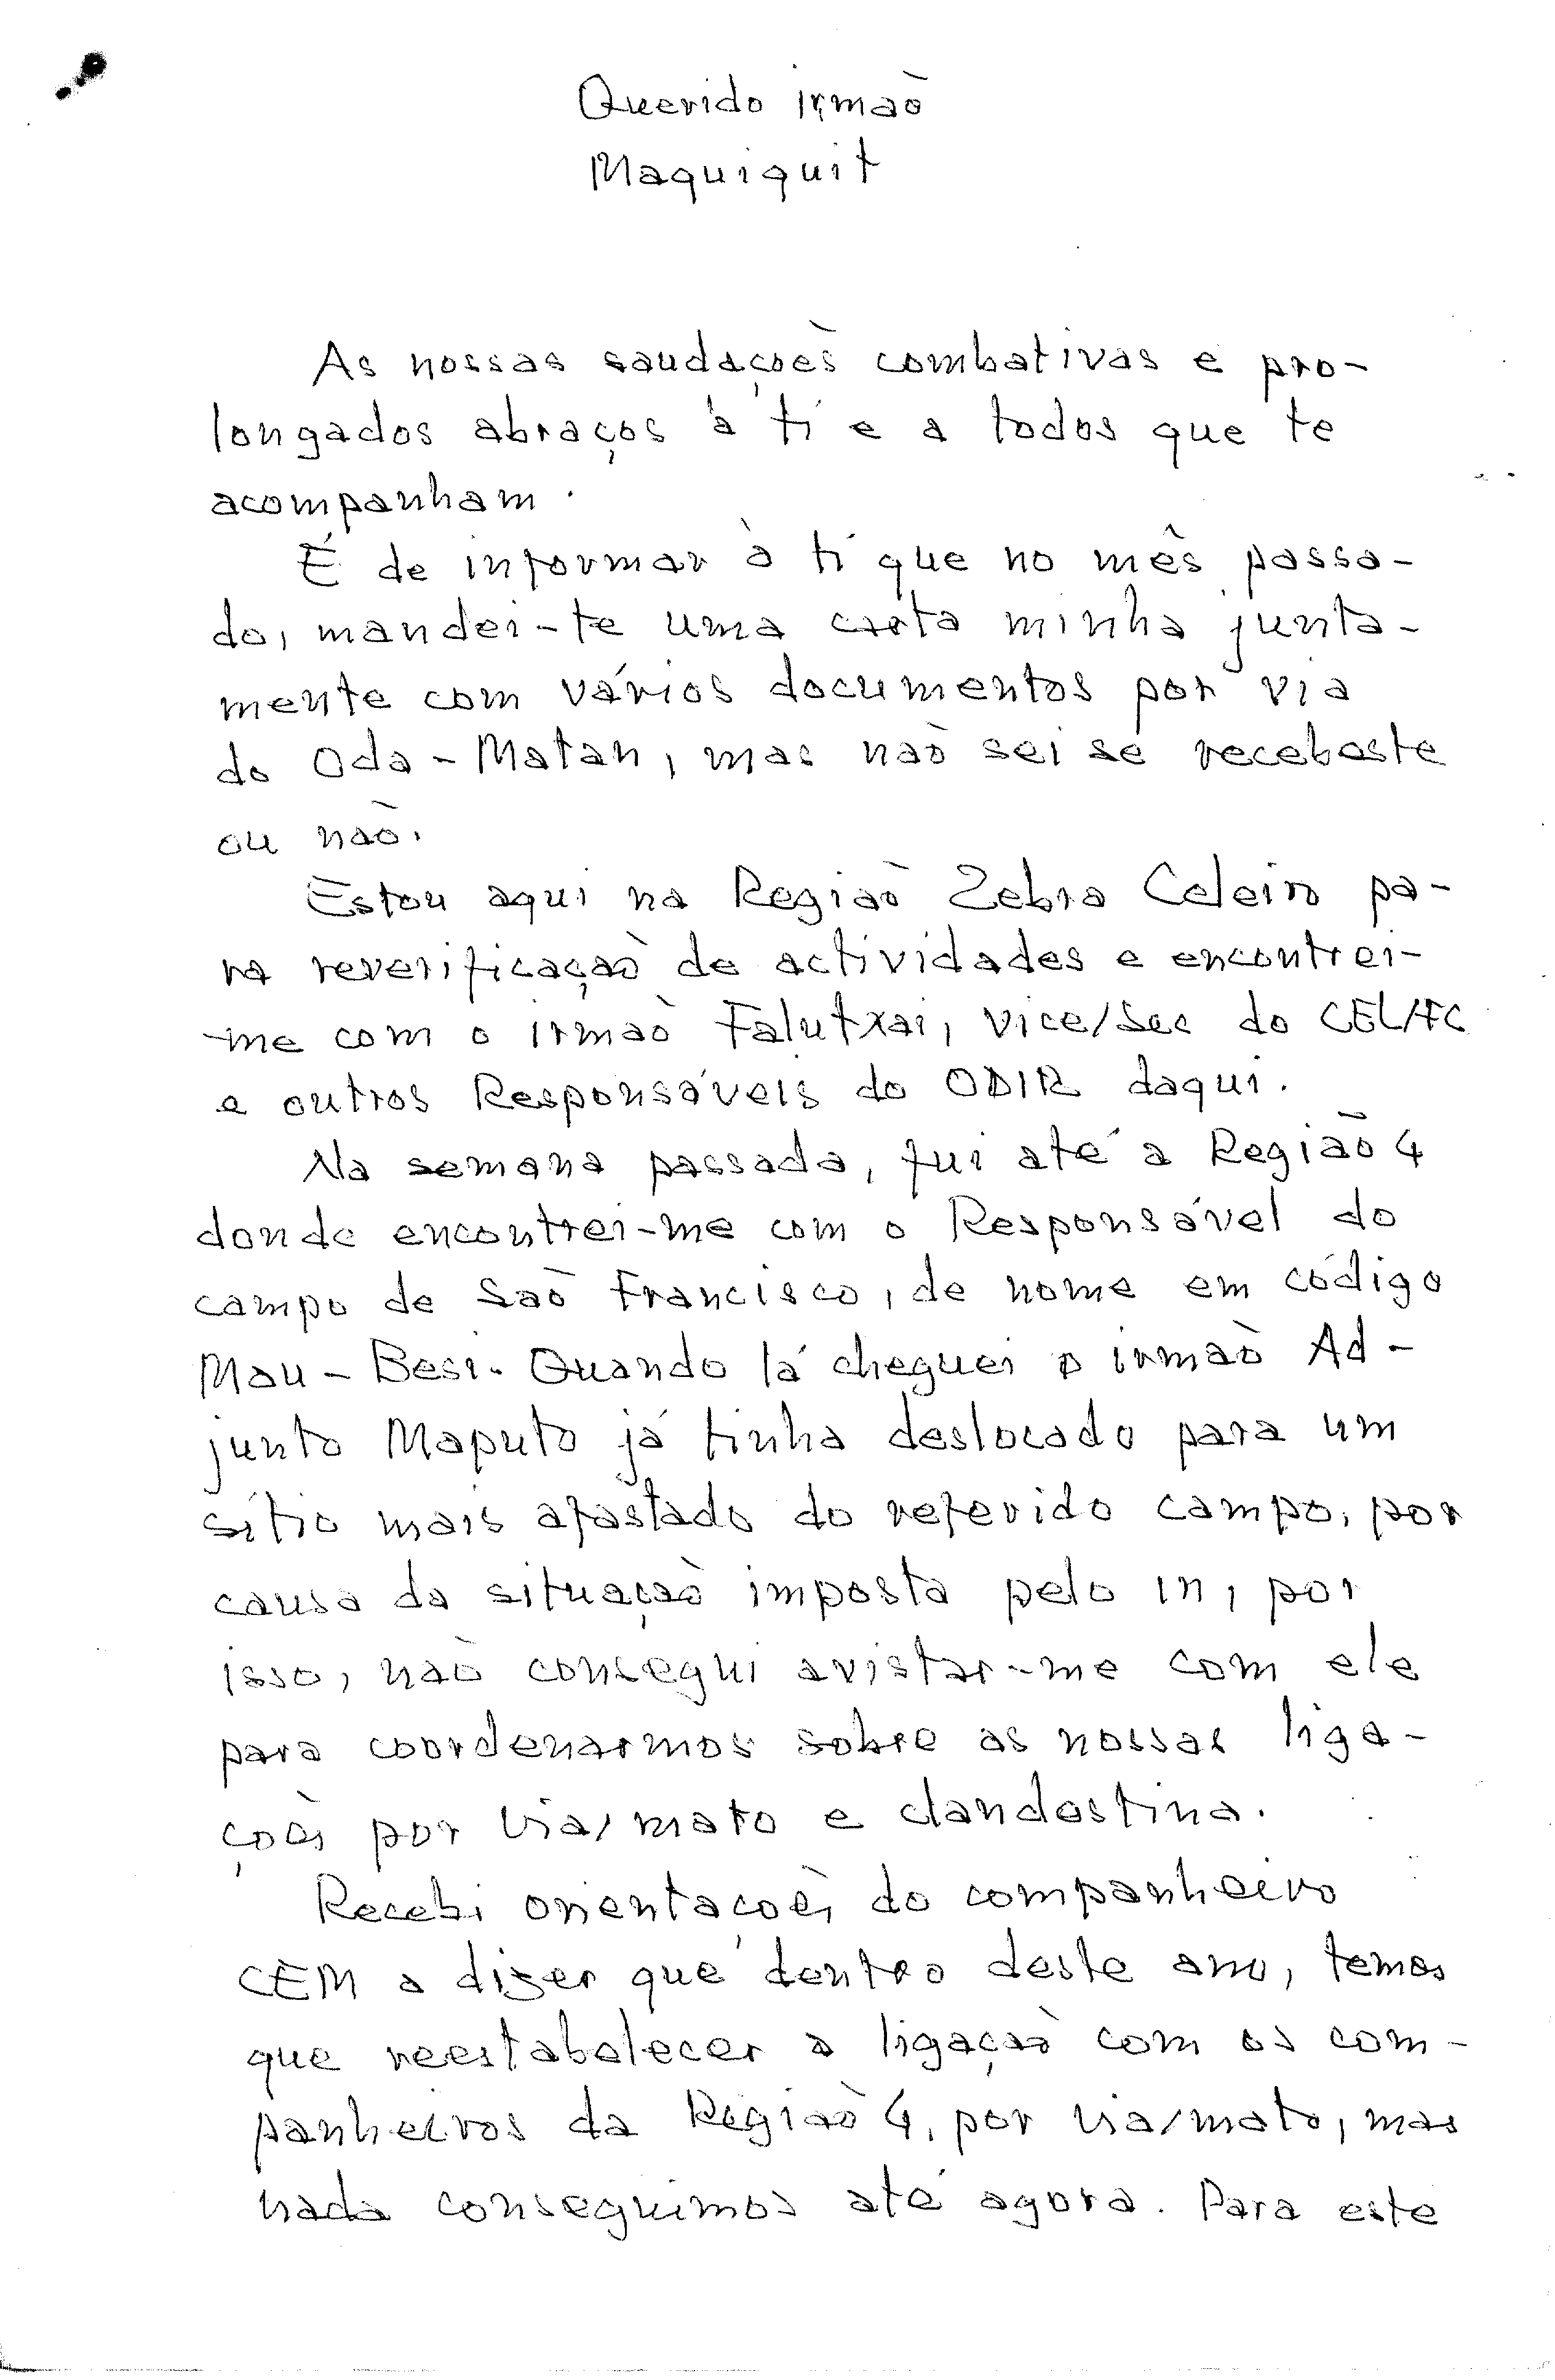 Querido irmão
Maquiquit
As nossas saudações combativas e pro-
longados abraços à ti e a todos que te
acompanham.
É de informar à ti que no mês passa-
do, mandei-te uma carta minha junta-
mente com vários documentos por via
do Oda-Matan, mas não sei se recebeste
ou não.
Estou aqui na Região Zebra Celeiro pa-
ra reverificação de actividades e encontrei-
-me com o irmão Falutxai, Vice/Sec do CEL/FC
e outros Responsáveis do ODIR daqui.
Na semana passada, fui até a Região 4
donde encontrei-me com o Responsável do
campo de São Francisco, de nome em código
Mau-Besi. Quando lá cheguei o irmão Ad-
junto Maputo já tinha deslocado para um
sítio mais afastado do referido campo, por
causa da situação imposta pelo in, por
isso, não consegui avistar-me com ele
para coordenarmos sobre as nossas liga-
ções por via/mato e clandestina.
Recebi orientações do companheiro
CEM a dizer que dentro deste ano, temos
que reestabelecer a ligação com os com-
panheiros da Região 4, por via/mato, mas
nada conseguimos até agora. Para este